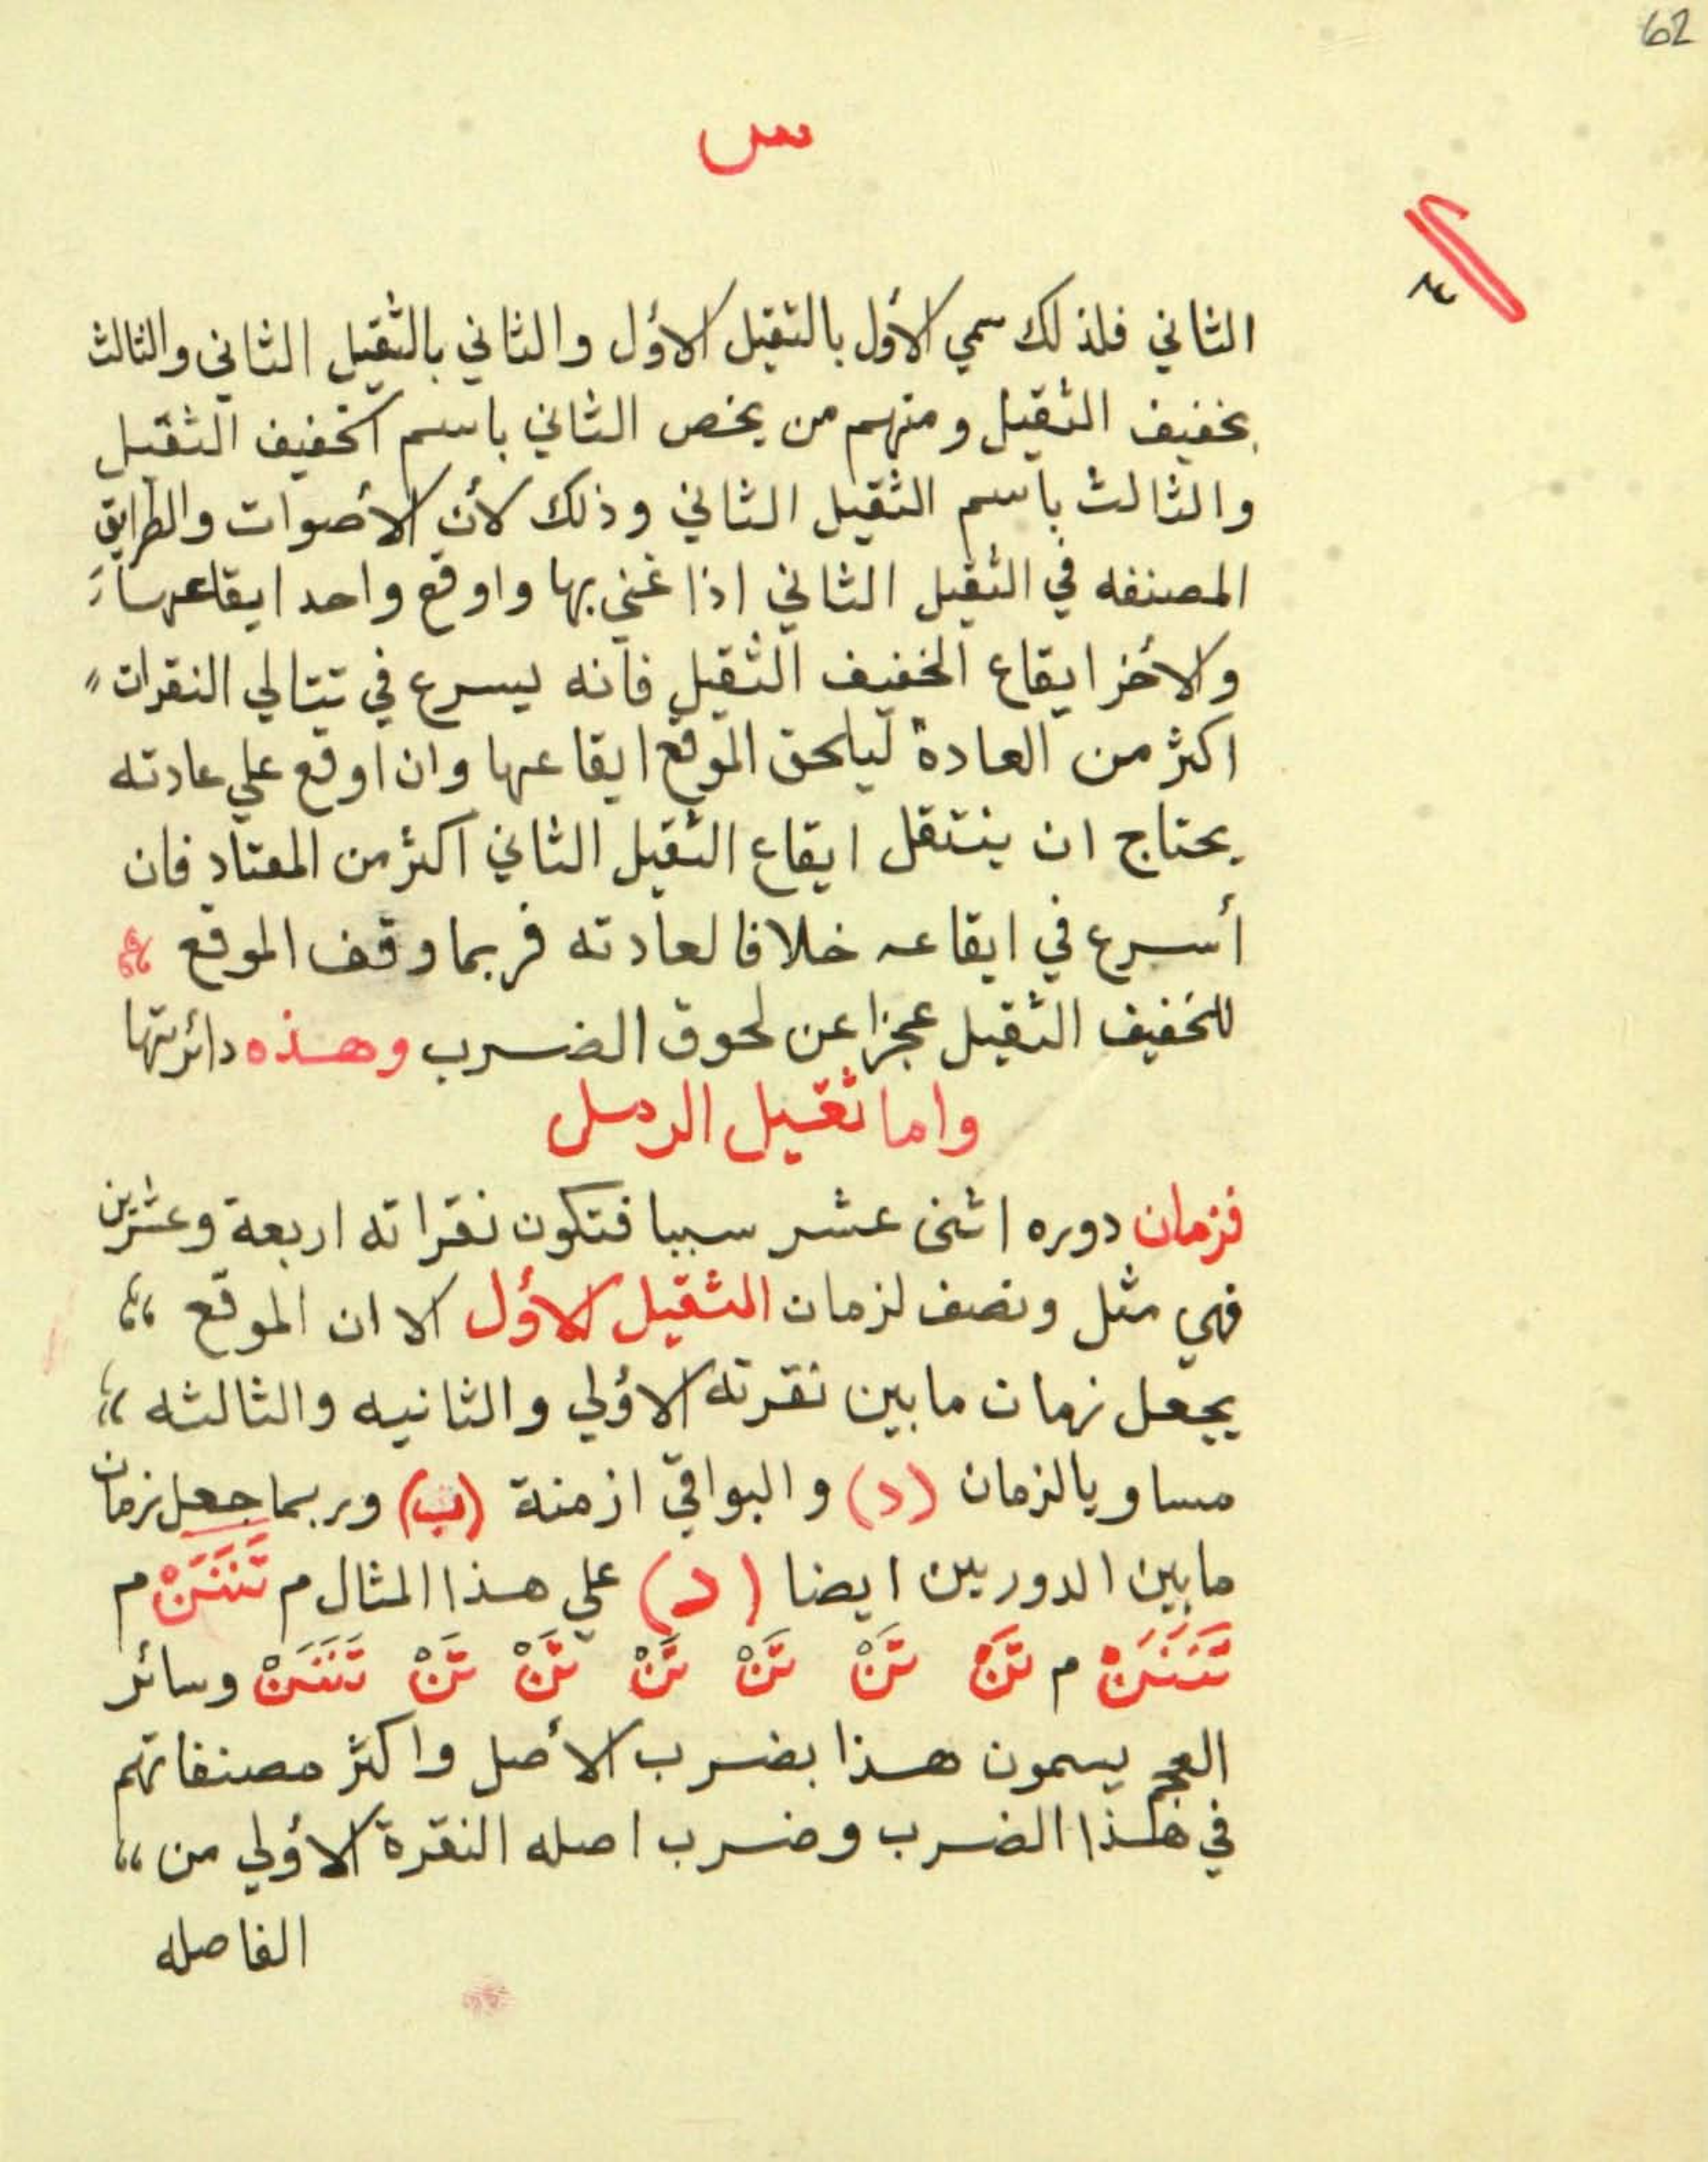 62
س
الثاني فلذلك سمي الأول بالثقيل الأول والثاني بالثقيل الثاني والثالث
بخفيف الثقيل ومنهم من يخص الثاني باسم الخفيف الثقيل
والثالث باسم الثقيل الثاني وذلك لأن الأصوات والطرايق
المصنفه في الثقيل الثاني اذا غني بها واوقع واحد ايقاعها
والأخر ايقاع الخفيف الثقيل فانه يسرع في تتالي النقرات
اكثر من العادة ليلحق الموقع ايقاعها وان اوقع علي عادته
يحتاج ان ينتقل ايقاع الثقيل الثاني اكثر من المعتاد فان
أسرع في ايقاعه خلافا لعادته فربما وقف الموقع
للخفيف الثقيل عجزا عن لحوق الضرب وهذه دائرتها
واما ثقيل الرمل
فزمان دوره اثنى عشر سببا فتكون نقراته اربعة وعشرين
فهي مثل ونصف لزمان الثقيل الأول الا ان الموقع
يجعل زمان ما بين نقرته الأولي والثانيه والثالثه
مساويا لزمان (د) والبواقي ازمنة (ب) وربما جعل زمان
مابين الدورين ايضا (د) علي هذا المثال م تَنَنَنْ م
تَنَنَنْ م تَنْ تَنْ تَنْ تَنْ تَنْ تَنْ تَنَنَنْ وسائر
العجم يسمون هذا بضرب الأصل واكثر مصنفاتهم
في هذا الضرب وضرب اصله النقرة الأولي من
الفاصله